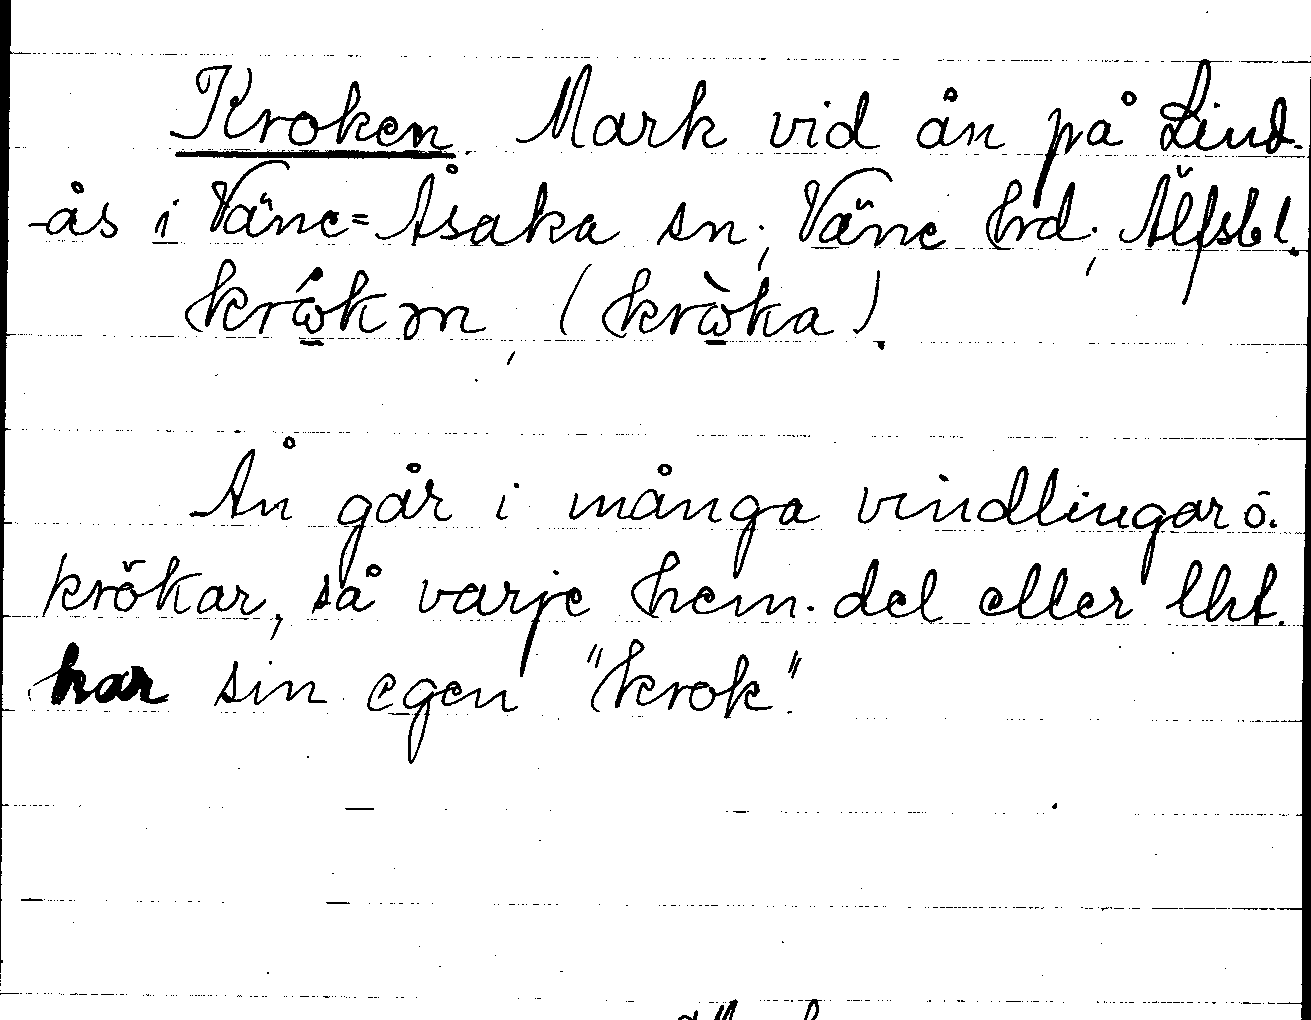 Kroken. Mark vid ån på Lind-
ås i Väne=Åsaka sn; Väne hrd; Älfsbl.
(kròka).
Ån går i många vindlingar o.
krökar, så varje hem. del eller lht.
har sin egen "krok".